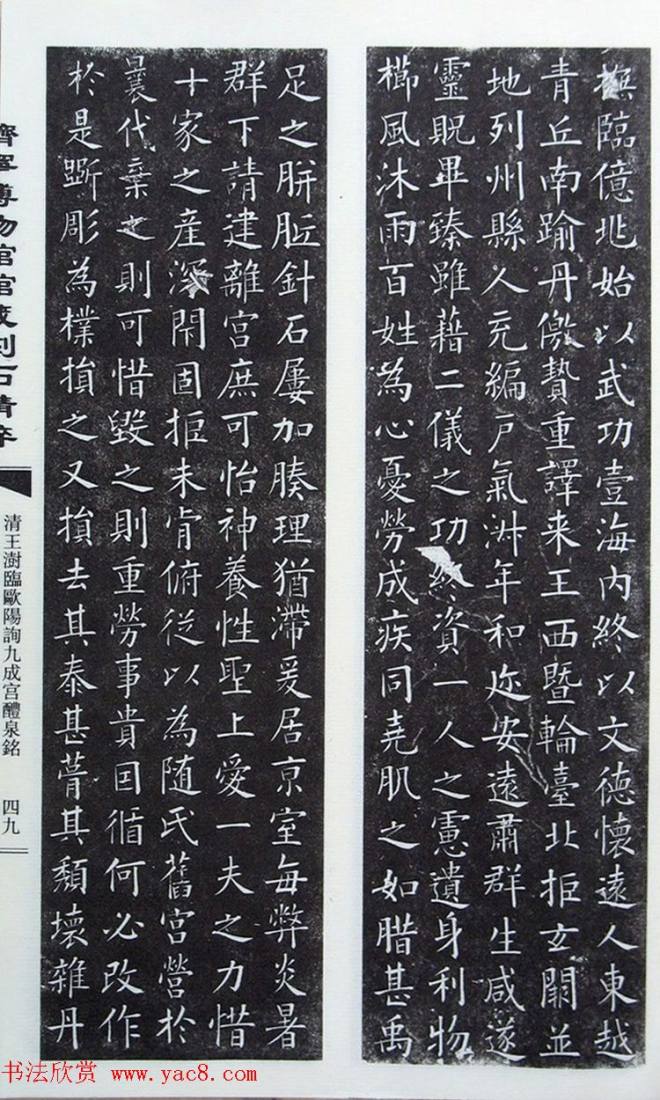 撫臨億兆始以武功壹海內終以文德懷遠人東越
青丘南踰丹儌贄重譯来王西暨輪臺北拒玄闕並
地列州縣人充編戶氣淑年和迩安遠肅群生咸遂
靈貺畢臻雖藉二儀之功終資一人之慮遺身利物
櫛風沐雨百姓為心憂勞成疾同堯肌之如腊甚禹
足之胼胝針石屢加腠理猶滯爰居京室每弊炎暑
群下請建離宮庶可怡神養性聖上愛一夫之力惜
十家之產深閇固拒未肯俯從以為随氏舊宮營於
曩代棄之則可惜毀之則重勞事貴因循何必改作
於是斲彫為樸損之又損去其泰甚葺其頹壞雜丹
濟寧博物館館藏刻石精萃
清王澍臨歐陽詢九成宮醴泉銘 四九
书法欣赏 www.yac8.com